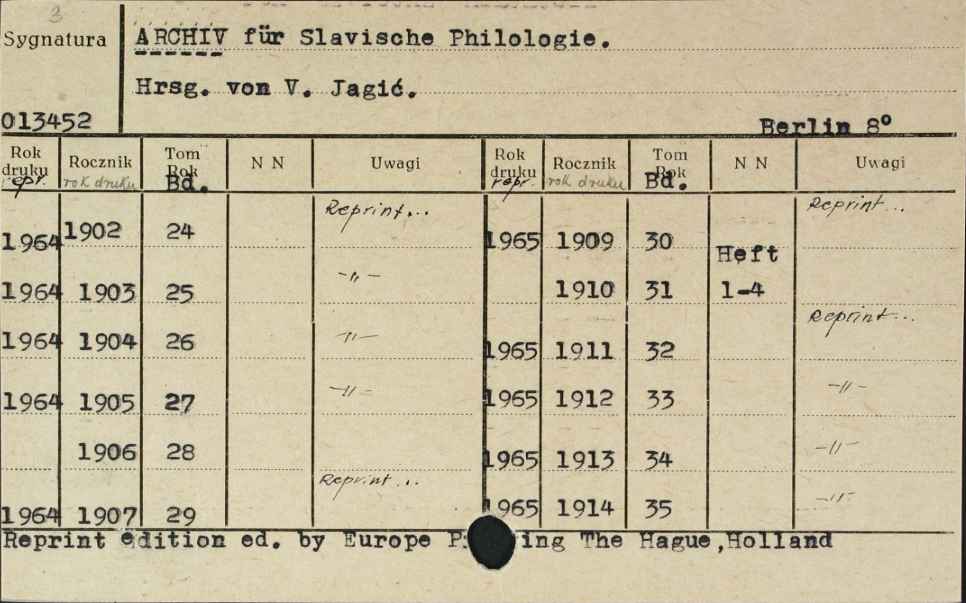 3
Sygnatura
ARCHIV für Slavische Philologie.
Hrsg. von V. Jagić.
013452
Berlin 8°
Rok druku repr. Rocznik rok druku Tom Rok Bd. N N Uwagi Rok druku repr. Rocznik rok druku Tom Rok Bd. N N Uwagi
Reprint... Reprint...
1964 1902 24 1965 1909 30
Heft
-"-
1964 1903 25 1910 31 1-4
Reprint...
1964 1904 26 -"- 1965 1911 32
1964 1905 27 -"- 1965 1912 33 -"-
1906 28 1965 1913 34 -"-
Reprint...
1964 1907 29 1965 1914 35 -"-
Reprint edition ed. by Europe The Hague,Holland